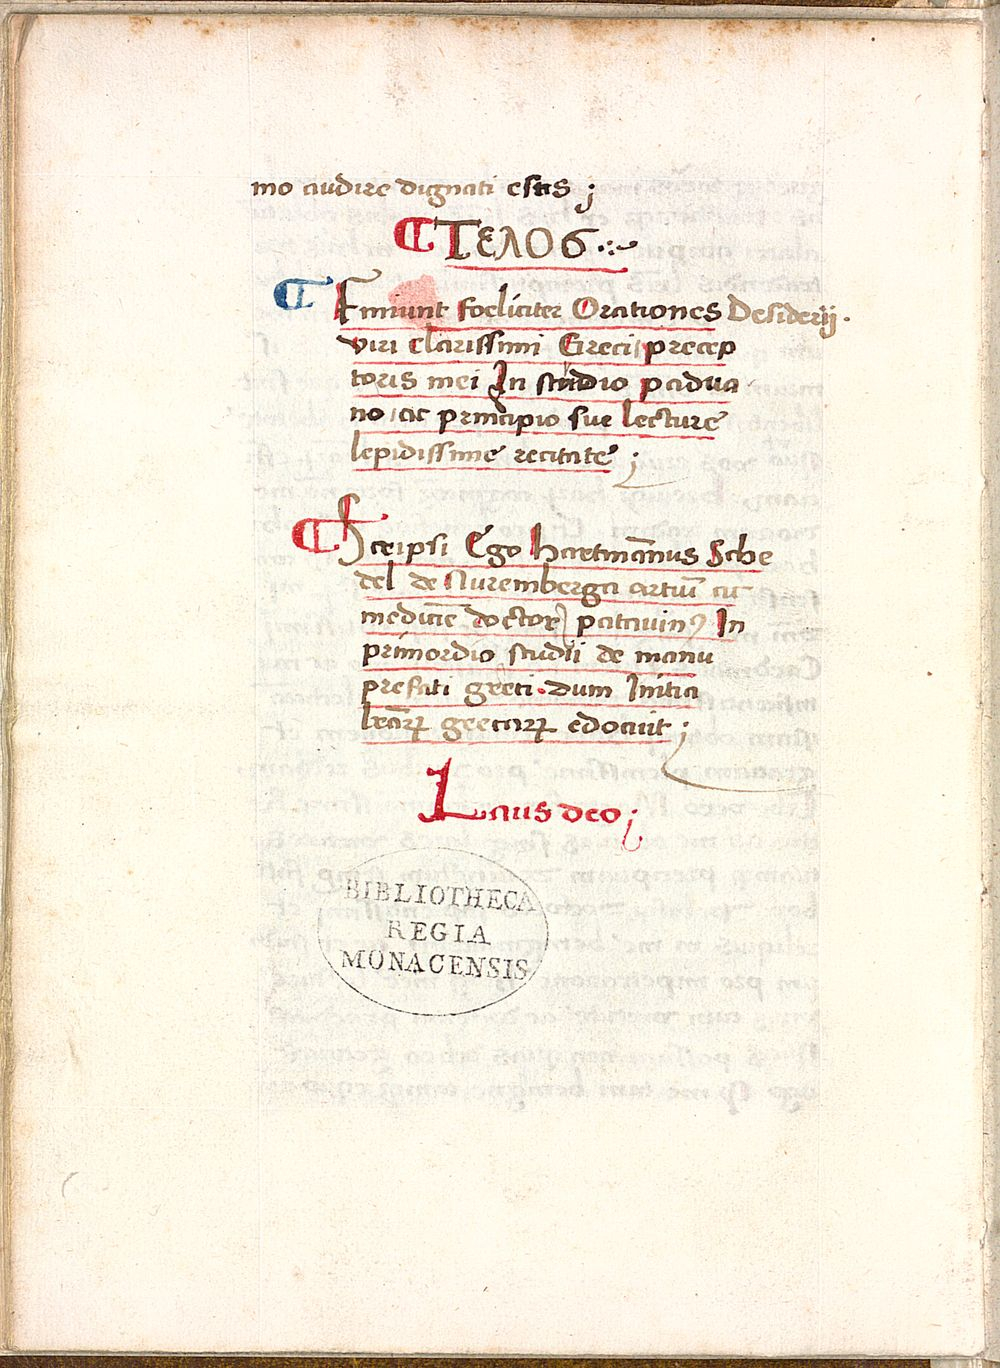 mo audire dignati estis ;
¶ Τελος
¶ Finiunt foeliciter Orationes Desiderij.
viri clarissimi Greci precep
toris mei In studio padua
no ac principio sue lecture
lepidissime recitate ;
¶ Scripsi Ego Hartmannus Sche
del de Nuremberga artiū ac
medicīe doctor patavinꝰ In
primordio studii de manu
prefati greci . dum Initia
lrāꝝ grecaꝝ edocuit ;
Laus deo ;
BIBLIOTHECA
REGIA
MONACENSIS